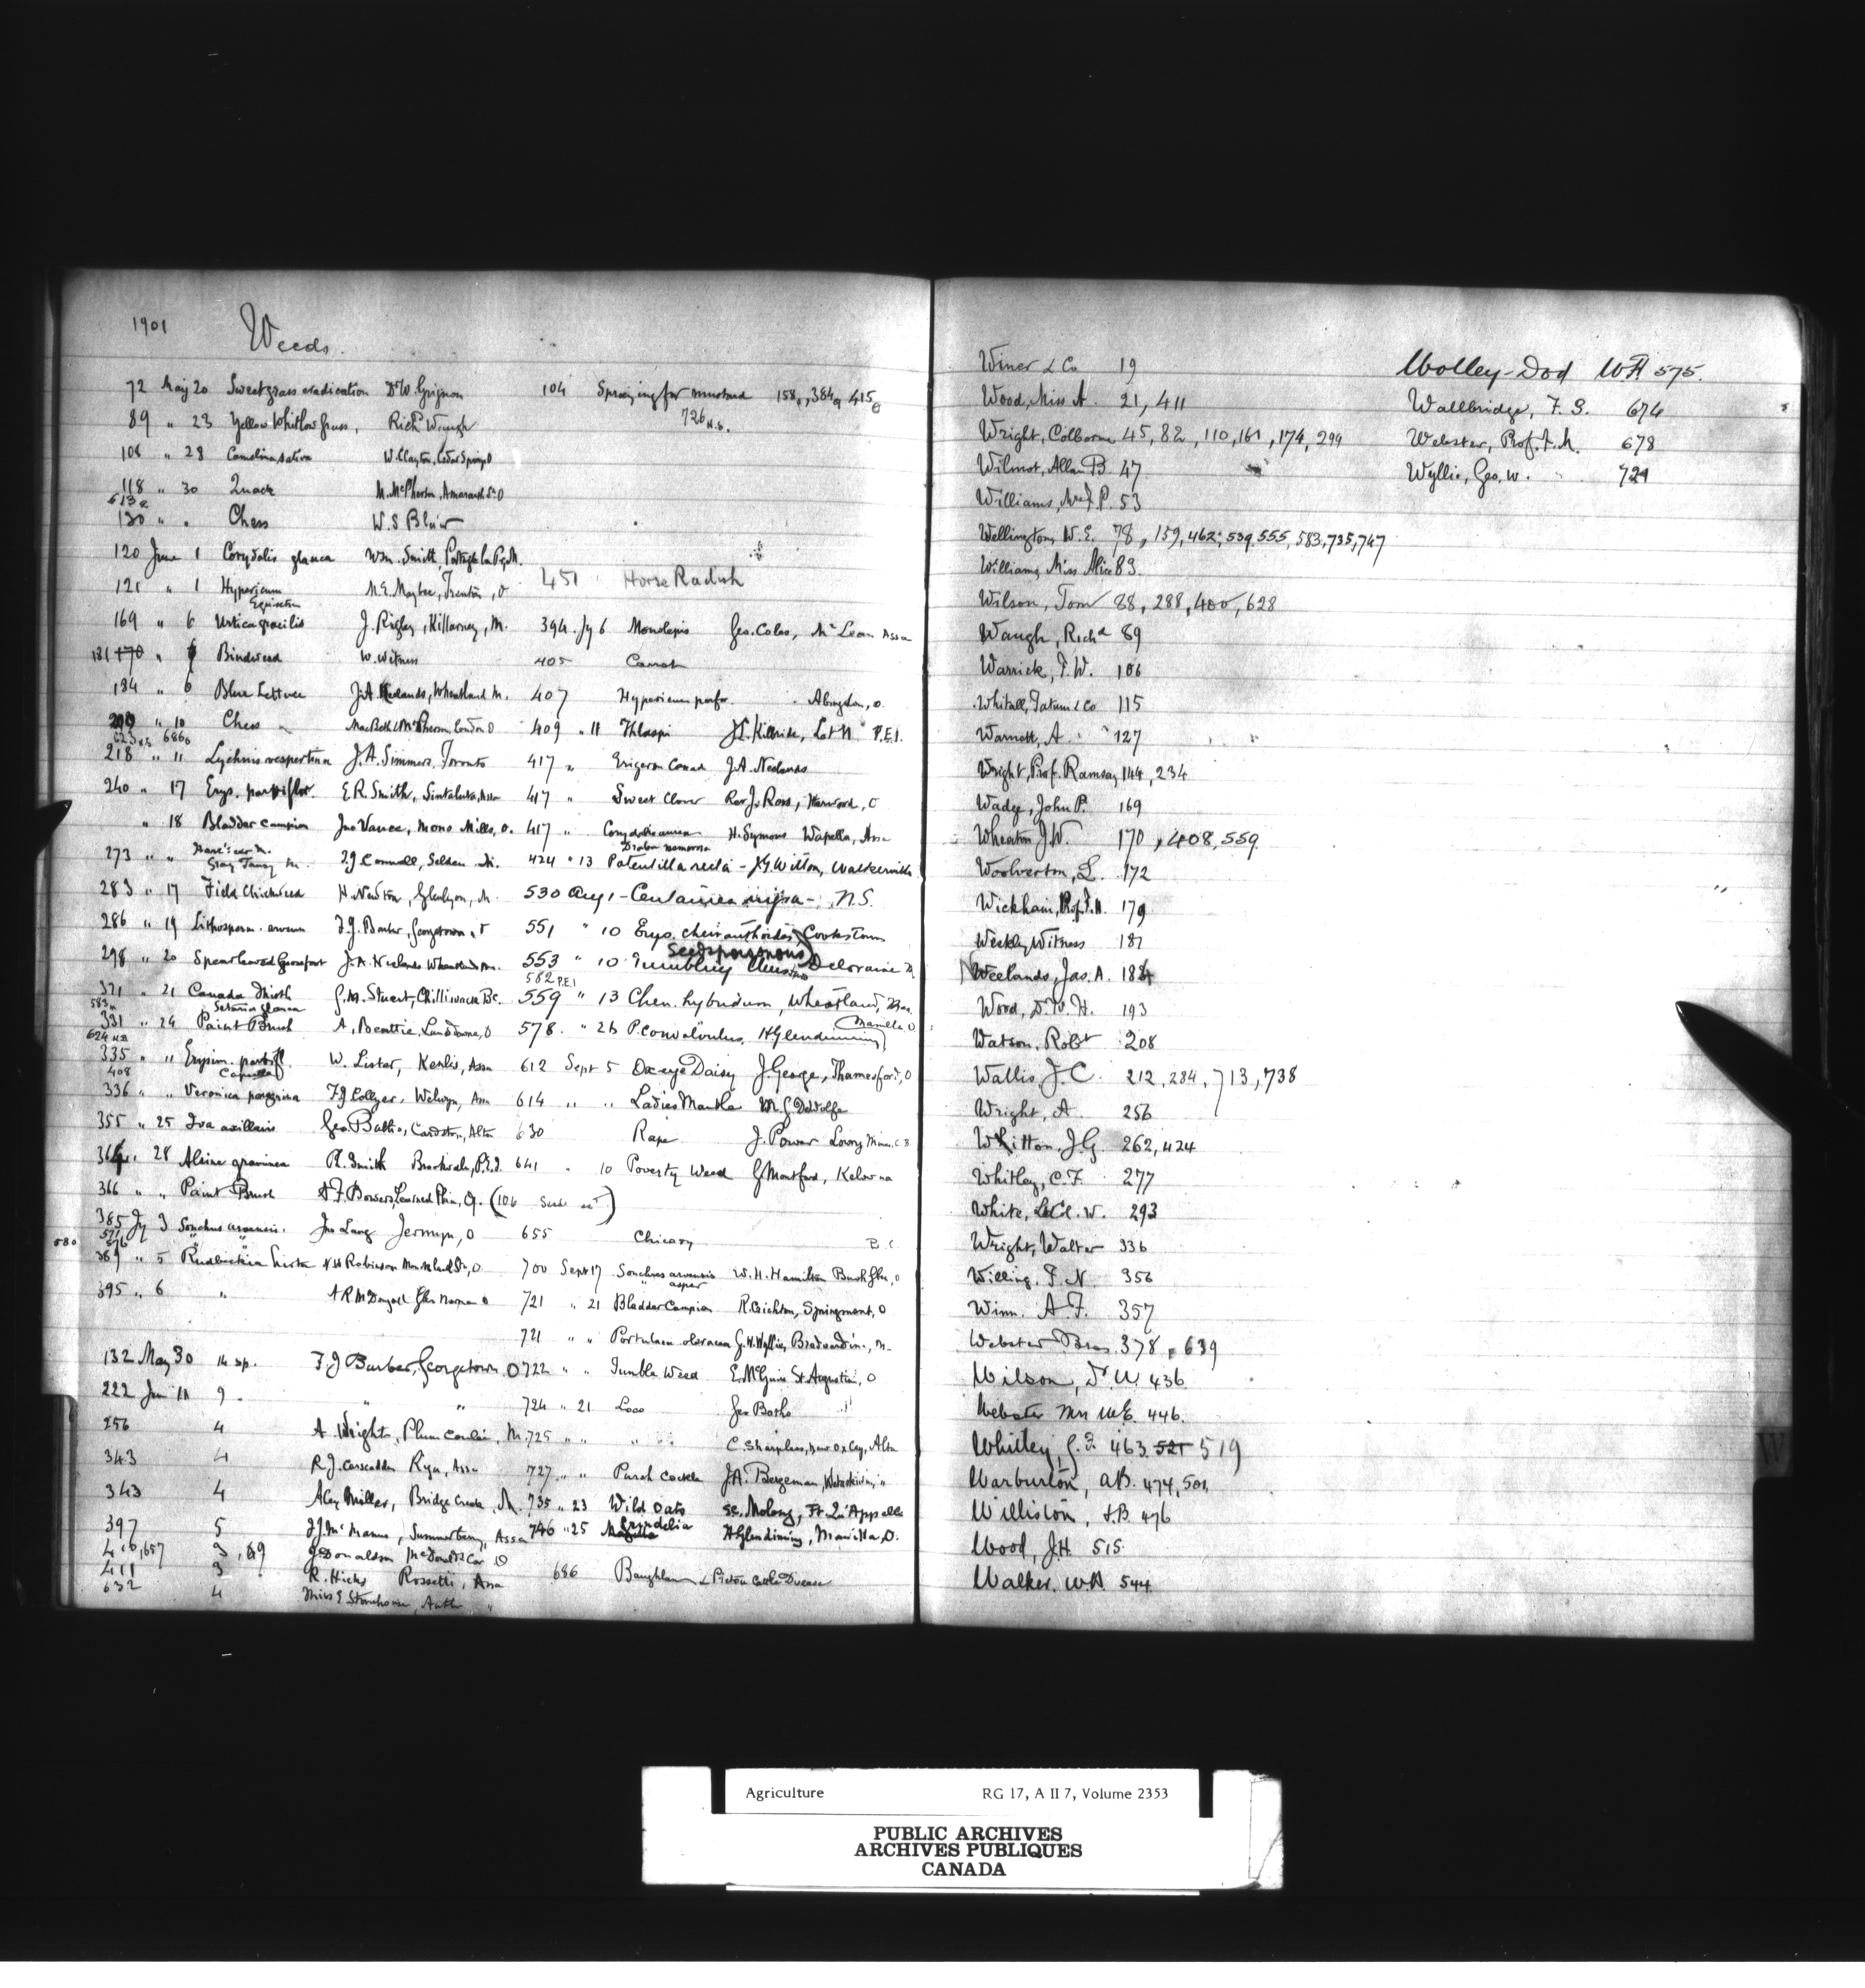 1901 Weeds
72 May 20 Sweetgrass eradication Dr W. Grignon 104 Spraying for mustard 158, 384, 415
89 " 23 Yellow Whitlow Grass, Richd Waugh 726 N.S.
108 " 28 Camelina sativa W. Clayton, Cedar Springs O
118 " 30 Quack M. McPherson, Amaranth Stn O
613
130 " " Chess W. S Blair
120 June 1 Corydalis glauca Wm. Smith, Portage la P., M.
451 Horse Radish
121 " 1 Hypericum M. E. Maybee, Trenton, O
Equisetum
169 " 6 Urtica gracilis J. Rigley, Killarney, M. 394 Jy 6 Monolepis Geo. Coles, McLean Assa
181 170 " Bindweed W. Witness 405 Carrot
184 " 6 Blue Lettuce J. A. Neelands, Wheatland M. 407 Hypericum perfor. Abingdon, O.
" 10 Chess MacBeth & McPherson, London O 409 " 11 Thlaspi Lot 11 P.E.I.
623 686
218 " 11 Lychnis vespertina J. A. Simmers, Toronto 417 " Erigeron Canad J. A. Neelands
240 " 17 Erys. parviflor. E R. Smith, Sintaluta, Assa 417 " Sweet Clover Rev J. Ross, Harwood, O
" 18 Bladder Campion Jno Vance, Mono Mills, O. 417 " Corydalis aurea H. Symons Wapella, Assa
Hare's ear M. Draba nemorosa
273 " " Gray Tansy M. T J Connell, Selden M. 424 " 13 Potentilla recta - J G. Witton, Walkerville
283 " 17 Field Chickweed H. Newton, Glenlyon, M. 530 Aug 1 - Centaurea nigra - N.S.
286 " 19 Lithosperm. arvense F. J. Barber, Georgetown, O 551 " 10 Erys. cheiranthoides, Cookstown
Seeds poisonous
298 " 20 Spear leaved Goosefoot J. A. Neelands Wheatland Man. 553 " 10 Tumbling Mustard Deloraine M
582 P.E.I
321 " 21 Canada Thistle G. M. Stuart, Chilliwack B.C. 559 " 13 Chen. hybridum, Wheatland, Man.
583 Setaria glauca
331 " 24 Paint Brush A. Beattie, Lansdowne, O 578. " 26 P. convolvulus, H Glendinning Manilla O
624 N.B
335 " " Erysim. parvifl W. Lister, Kenlis, Assa 612 Sept 5 Oxeye Daisy J. George, Thamesford, O
408 Capsella
336 " " Veronica peregrina F J Collyer, Welwyn, Assa 614 " " Ladies Mantle M. G DeWolfe
355 " 25 Iva axillaris Geo. Baths, Cardston, Alta 630 Rape J. Power Lowry Mines C B
364 " 28 Alsine graminea R. Smith Brookvale, P.E.I. 641 " 10 Poverty Weed G Montford, Kelowna
366 " " Paint Brush A. F. Bowers, Learned Plain, Q. (106 Seed )
385 Jy 3 Sonchus arvensis. Jno Lang Jermyn, O 655 Chicory B.C.
580 571 576 " "
389 " 5 Rudbeckia hirta N. H Robinson O 700 Sept 17 Sonchus arvensis W. H. Hamilton Bush Glen, O
" asper
395 " 6 " A R McDougall Glen Norman O 721 " 21 Bladder Campion R. Crichton, Springmount, O
721 " " Portulaca oleracea G. W. Wyllie, Bradwardine, M.
132 May 30 14 sp. F. J Barber, Georgetown O 722 " " Tumble Weed E. McGuire St. Augustine, O
222 Jun 11 9. " " 724 " 21 Loco Geo Baths "
256 4 A. Wright, Plum Coulee, M. 725 " " " " C. Sharples, New Oxley, Alta
343 4 R. J. Carscadden Ryu, Assa 727 " " Purple Cockle J. A. Bergeman, Wetaskiwin, "
343 4 Alex Miller, Bridge Creek, M. 735 " 23 Wild Oats Se. Molony, Ft. Qu'Appelle
397 5 J J. McManus, Summerberry, Assa 746 " 25 Grindelia H Glendinning, Manilla, O.
410, 657 3, 19 J. Donaldson McDonald's Cor O
411 3 R. Hicks Rossetti, Assa 686 Baughlan & Pictou Cattle Disease
632 4 Miss E Stonehouse, "
Winer & Co 19
Wood, Miss A. 21, 411
Wright, Colborne 45, 82, 110, 161, 174, 299
Wilmot, Allan B. 47
Williams, Mr J. P. 53
Wellington, W. E. 78, 159, 462, 539, 555, 583, 735, 747
Williams, Miss Alice 83.
Wilson, Tom 88, 288, 400, 628
Waugh, Richd 89
Warrick, F. W. 106
Whitall, Tatum & Co 115
Warnock, A. 127
Wright, Prof. Ramsay 144, 234
Wade, John P. 169
Wheaton J. W. 170, 408, 559
Woolverton, L. 172
Wickham, Prof. H. 179
Weekly Witness 181
Neelands, Jas. A. 184
Wood, D. W. H. 193
Watson, Robt 208
Wallis J. C. 212, 284, 713, 738
Wright, A. 256
Whitton, J. G. 262, 424
Whitley, C. F. 277
White, LeCl. W. 293
Wright, Walter 336
Willing, T. N. 356
Winn. A. F. 357
Webster Bros. 378, 639
Wilson, Dr W. 436
Webster Mrs W.E. 446.
Whitley C. F 463 521 519
Warburton, A.B. 474, 501
Williston, S.B 476
Wood, J.H. 515
Walker. W.A. 544
Wolley-Dod W A 575.
Wallbridge, F. S. 674
Webster, Prof. F. M. 678
Wyllie, Geo. W. 721
W
Agriculture RG 17, A II 7, Volume 2353
PUBLIC ARCHIVES
ARCHIVES PUBLIQUES
CANADA